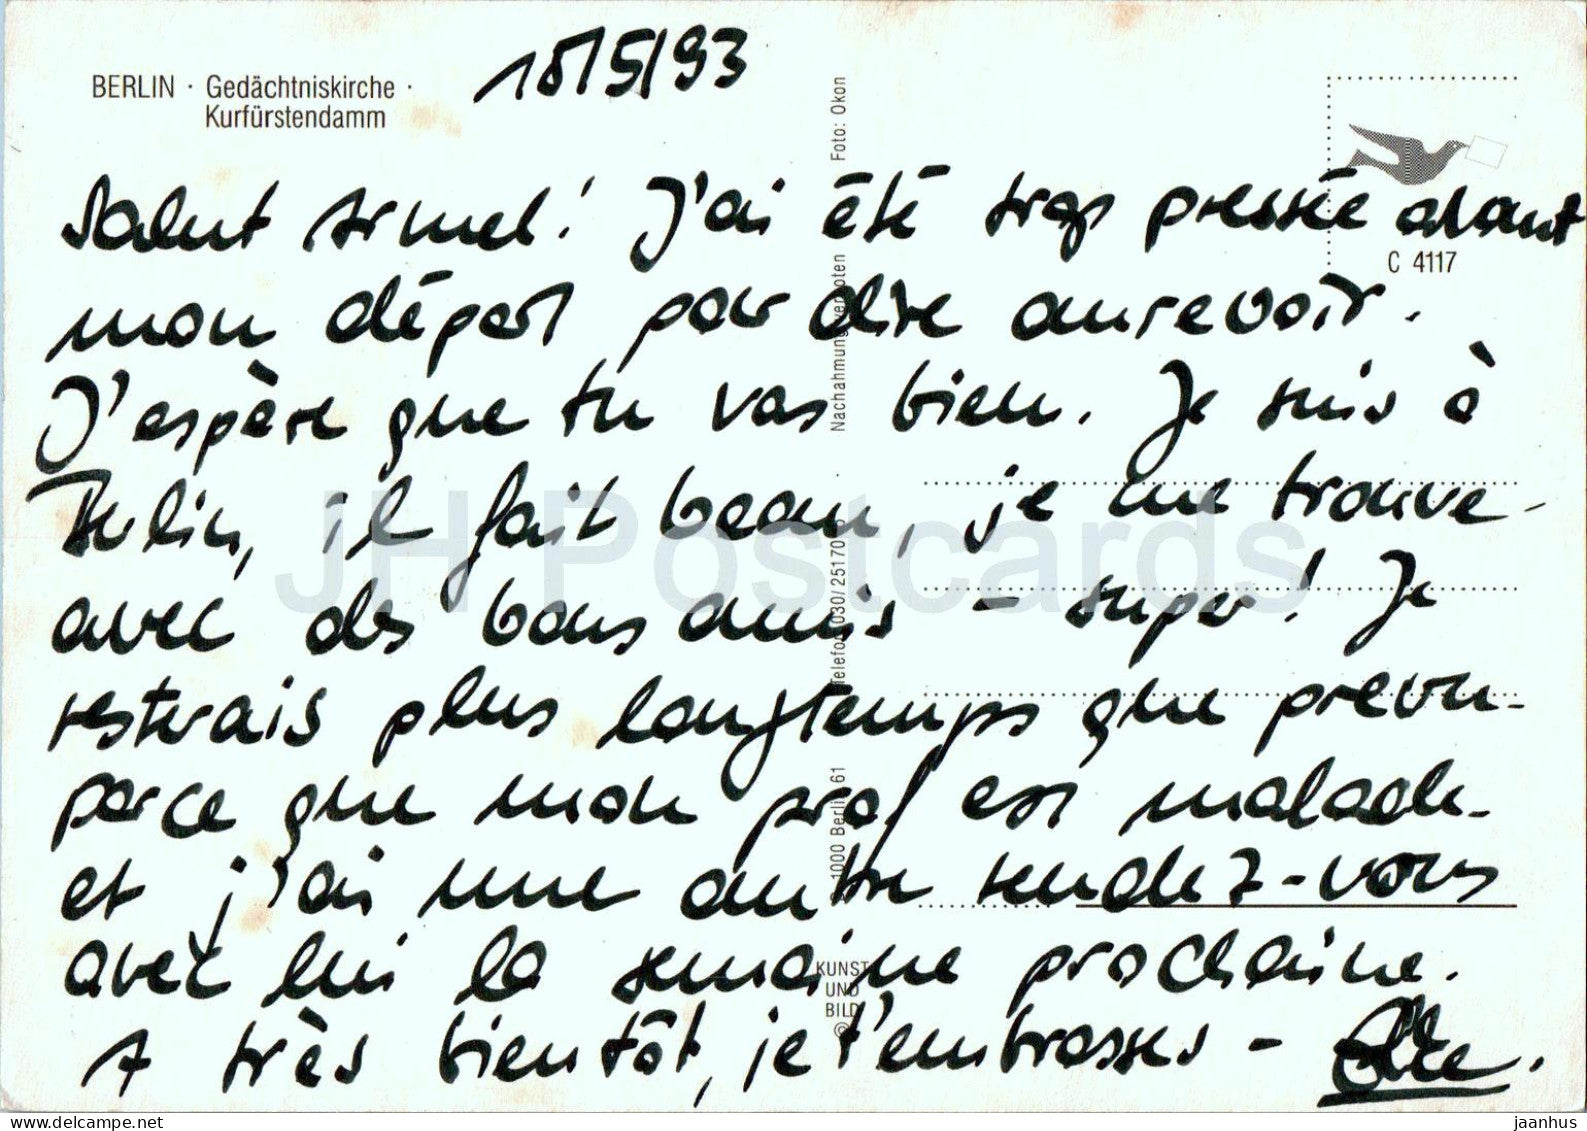 BERLIN · Gedächtniskirche ·
Kurfürstendamm
18/5/93
C 4117
Salut Armel! J'ai été trop pressée avant
mon départ pour dire aurevoir.
J'espère que tu vas bien. Je suis à
Berlin, il fait beau, je me trouve
avec des bons amis - super! Je
resterais plus longtemps que prevu
parce que mon prof est malade
et j'ai une autre rendez-vous
avec lui la semaine prochaine.
A très bientôt, je t'embrasses -
Foto: Okon
Nachahmung verboten
Telefon 030/25170
1000 Berlin 61
KUNST
UND
BILD
©
JH Postcards
jaanhus